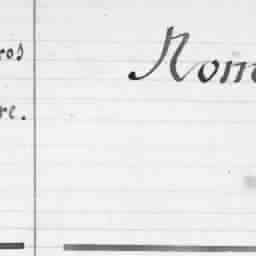 ros
re.
Nom